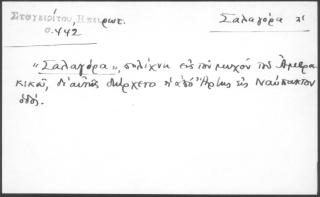 Σταγειρίτου, Ηπειρωτ. Σαλαγόρα ἡ
σ. 442
"Σαλαγόρα", πολίχνη εἰς τὸν μυχὸν τοῦ Ἀμβρα
κικοῦ, δι' αὐτῆς διήρχετο ἡ ἀπὸ Ἄρτης εἰς Ναύπακτον
ὁδός.